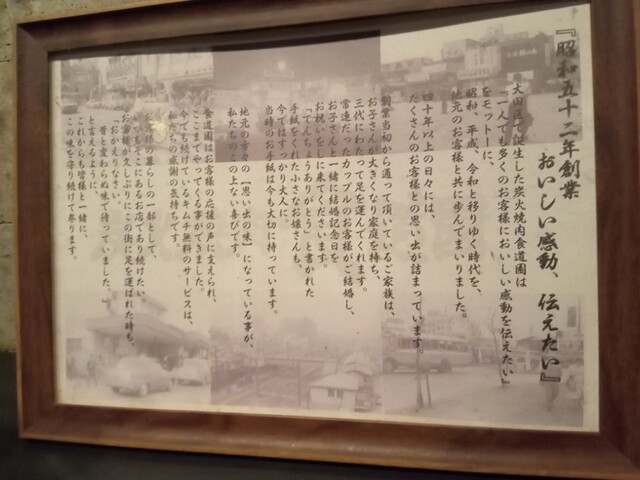 『昭和五十二年創業
おいしい感動、伝えたい』
大田区で誕生した炭火焼肉食道園は
『一人でも多くのお客様においしい感動を伝えたい』
をモットーに、
昭和、平成、令和と移りゆく時代を、
地元のお客様と共に歩んでまいりました。
四十年以上の日々には、
たくさんのお客様との思い出が詰まっています。
創業当初から通って頂いているご家族は、
お子さんが大きくなり家庭を持ち、
三代にわたって足を運んでくれます。
常連だったカップルのお客様がご結婚し、
お子さんと一緒に結婚記念日を
お祝いをしに来てくださいます。
「てんちょうありがとう」と書かれた
手紙をくれた小さなお嬢さんも、
今ではすっかり大人に。
当時のお手紙は今も大切に持っています。
地元の方々の【思い出の味】になっている事が、
私たちのこの上ない喜びです。
食道園はお客様の応援の声に支えられ、
ここまでやってくる事ができました。
今でも続けているキムチ無料のサービスは、
私たちの感謝の気持ちです。
お客様の暮らしの一部として、
いつもそこにあるお店であり続けたい。
お客様が久しぶりにこの街に足を運ばれた時も、
「おかえりなさい。
昔と変わらぬ味で待っていました。」
と言えるように、
これからも皆様と一緒に、
この味を守り続けて参ります。